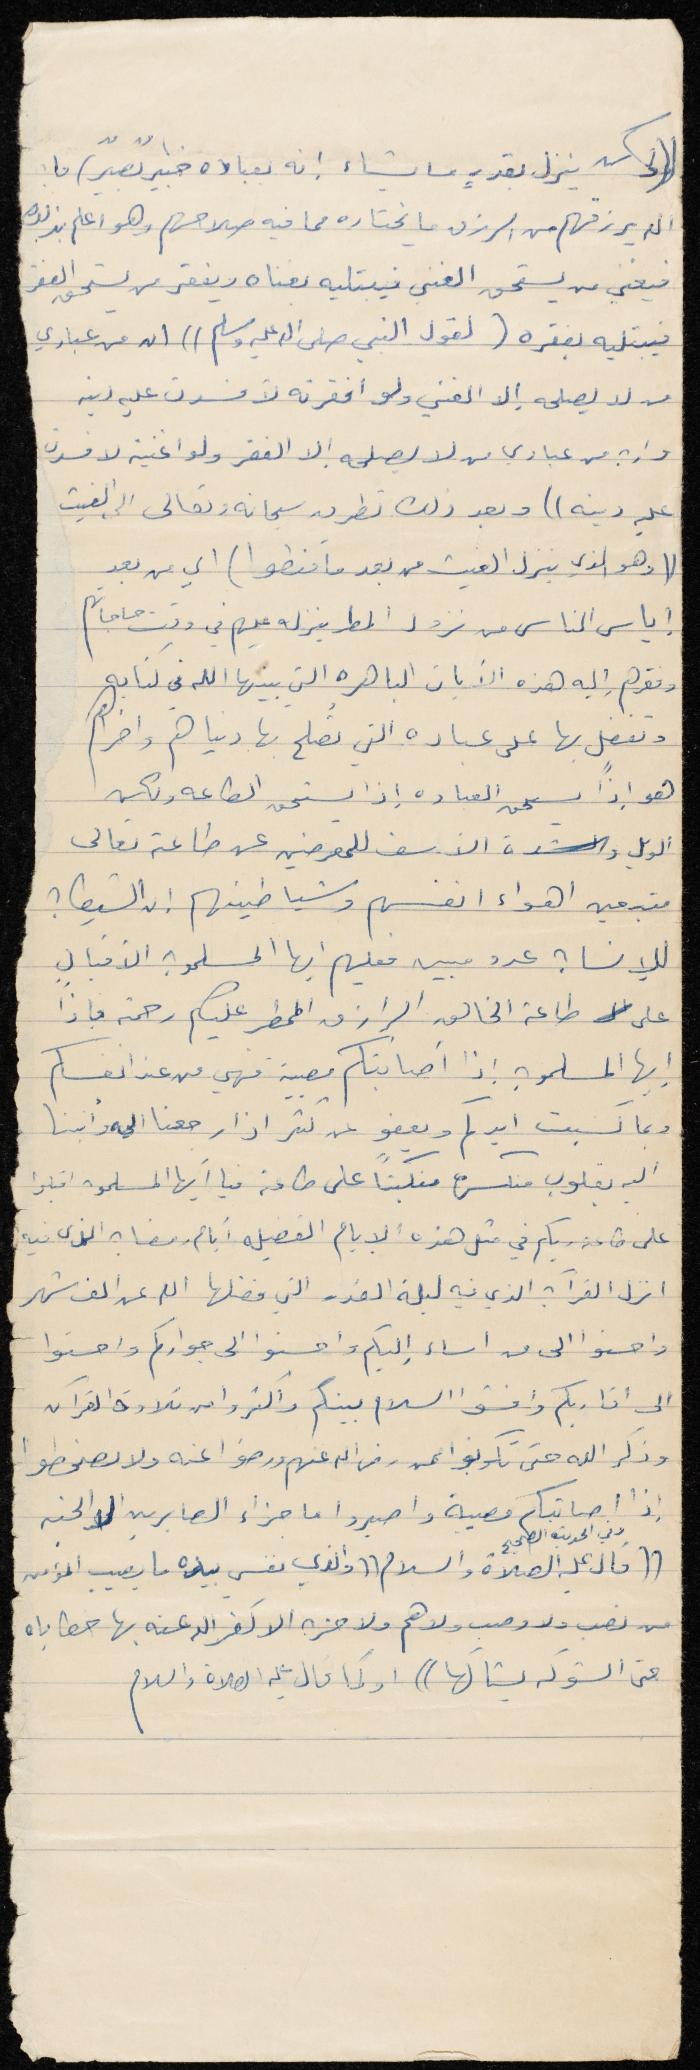 ((ولكن ينزل بقدرٍ ما يشاء إنه بعباده خبيرٌ بصيرٌ) فا
الله يرزقهم من الرزق ما يختاره مما فيه صلاحهم وهو اعلم بذلك
فيغني من يستحق الغنى فيبتليه بغناه ويفقر من يستحق الفقر
فيبتليه بفقره ( لقول النبي صلى الله عليه وسلم )) ان من عبادي
من لا يصلحه إلا الغنى ولو أفقرته لأفسدت عليه دينه
وان من عبادي من لا يصلحه إلا الفقر ولو اغنيته لافسدت
عليه دينه )) وبعد ذلك تطرق سبحانه وتعالى الى الغيث
((وهو الذي ينزل الغيث من بعد ما قنطوا) اي من بعد
إياس الناس من نزول المطر ينزله عليهم في وقت حاجاتهم
وفقرهم إليه هذه الآيات الباهره التي بينها الله في كتابه
وتفضل بها على عباده التي تُصلح بها دنياهم واخراهم
هو إذاً يستحق العباده إذا يستحق الطاعه ولكن
الويل وشدة الأسف للمعرضين عن طاعة تعالى
متبعين اهواء انفسهم وشياطينهم ان الشيطان
للإنسان عدو مبين فعليكم ايها المسلمون الأقبال
على طاعة الخالق الرازق الممطر عليكم رحمته فإذاً
ايها المسلمون إذا أصابتكم مصيبة فهي من عند انفسكم
وبما كسبت ايديكم ويعفو عن كثير اذا رجعنا اليه وأنبنا
اليه بقلوب منكسره منكبتاً على طاعة فيا أيها المسلمون اقبلوا
على طاعة ربكم في مثل هذه الايام الفضيله أيام رمضان الذي فيه
انزل القرآن الذي فيه ليلة القدر التي فضلها الله عن الف شهر
واحسنوا الى من اساء إليكم واحسنوا الى جواركم واحسنوا
الى أقاربكم وأفشوا السلام بينكم وأكثروا من تلاوة القرآن
وذكر الله حتى تكونوا ممن رضي الله عنهم ورضوا عنه ولا تسخطوا
إذا أصابتكم مصيبة واصبروا ما جزاء الصابرين الا الجنه
وفي الحديث الصحيح
(( قال عليه الصلاة والسلام (( والذي نفسي بيده ما يصيب المؤمن
من نصب ولا وصب ولا هم ولا حزن الا كفر الله عنه بها خطاياه
حتى الشوكه يشاكها )) او كما قال عليه الصلاة والسلام